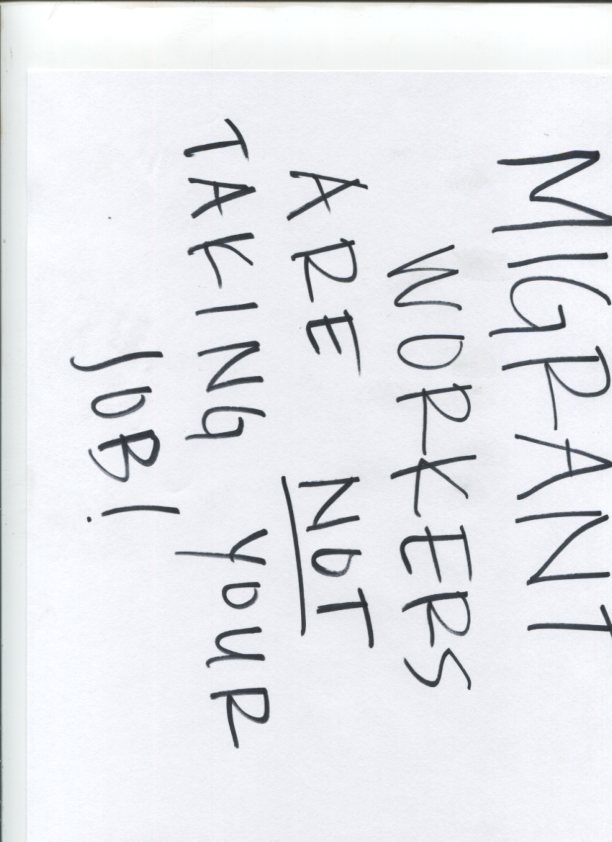 MIGRANT
WORKERS
ARE NOT
TAKING YOUR
JOB!